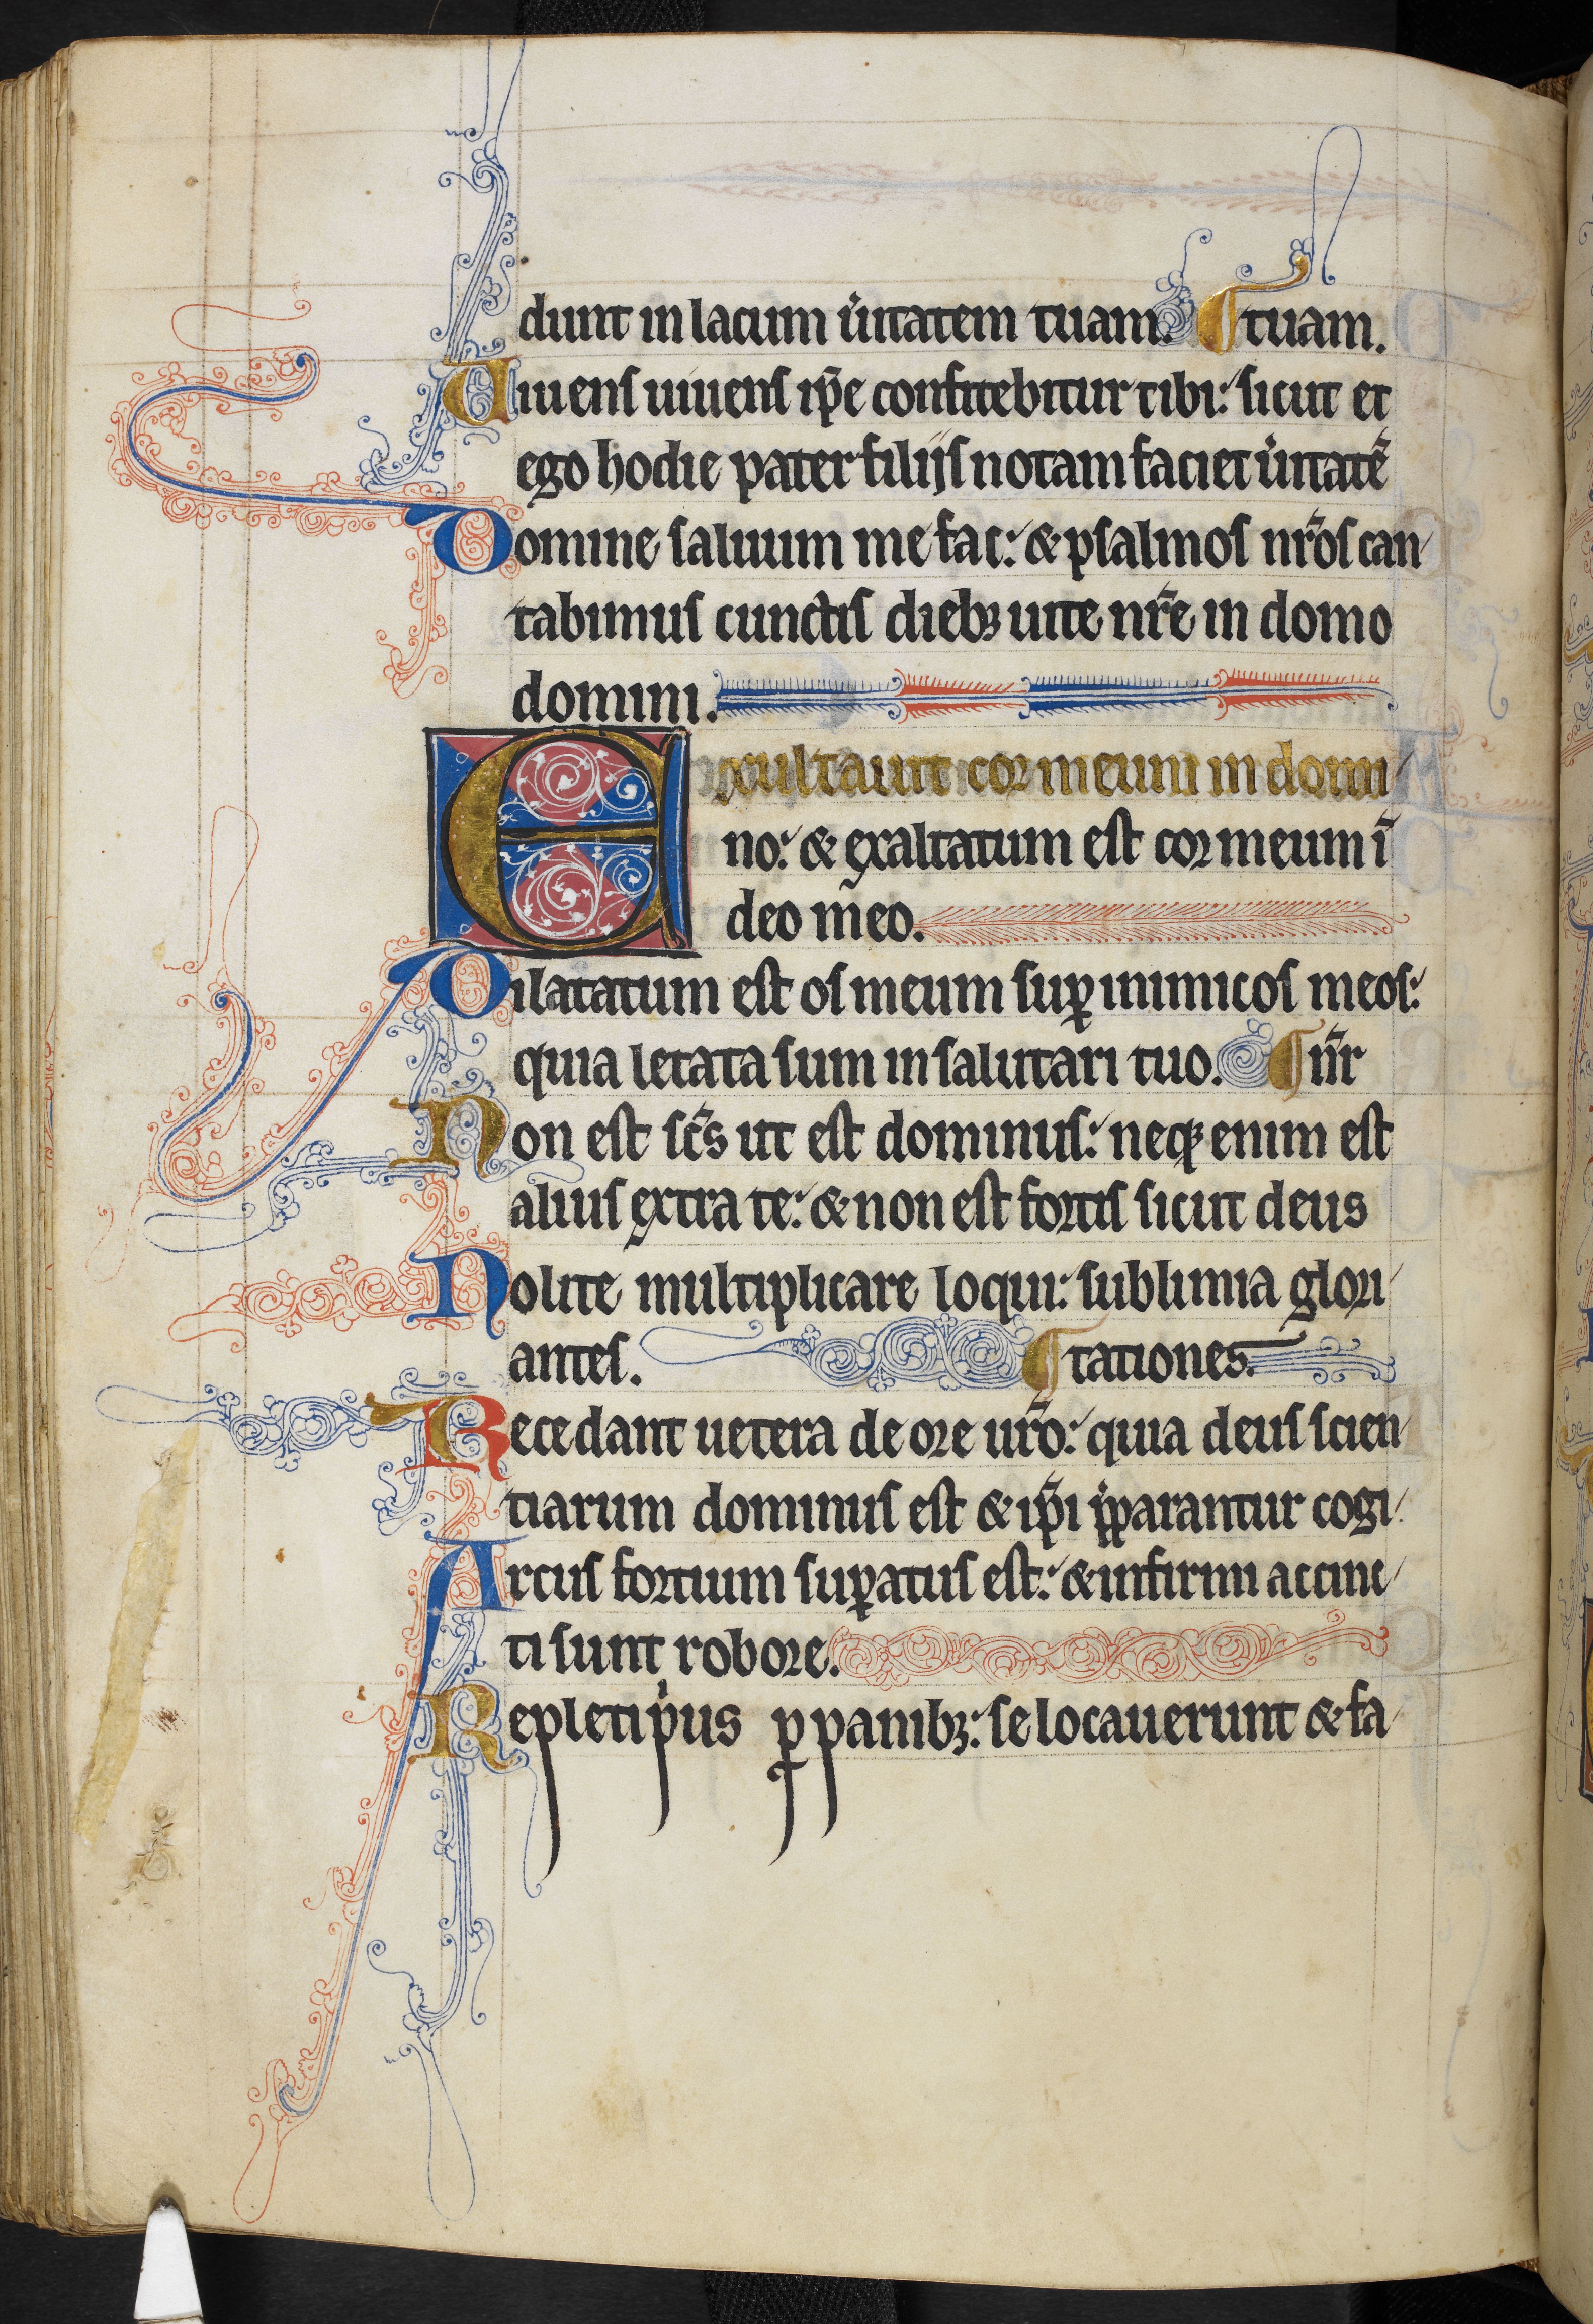 dunt in lacum ũitatem tuam. tuam.
Viuens uiuens ip̃e confitebitur tibi: sicut et
ego hodie pater filijs notam faciet ũitatẽ
Domine saluum me fac: & psalmos nr̃os can
tabimus cunctis dieb; uite nr̃e in domo
domini.
Exultauit cor meum in domi
no: & exaltatum est cor meum ĩ
deo meo.
Dilatatum est os meum suꝑ inimicos meos:
quia letata sum in salutari tuo. nr̃
Non est sc̃s ut est dominus: neq; enim est
alius extra te: & non est fortis sicut deus
Nolite multiplicare loqui: sublimia glori
antes. tationes.
Recedant uetera de ore ur̃o: quia deus scien
tiarum dominus est & ip̃i p̃parantur cogi
Arcus fortium suꝑatus est: & infirmi accinc
ti sunt robore.
Repleti pi̇us ꝓ panib;: se locauerunt & fa